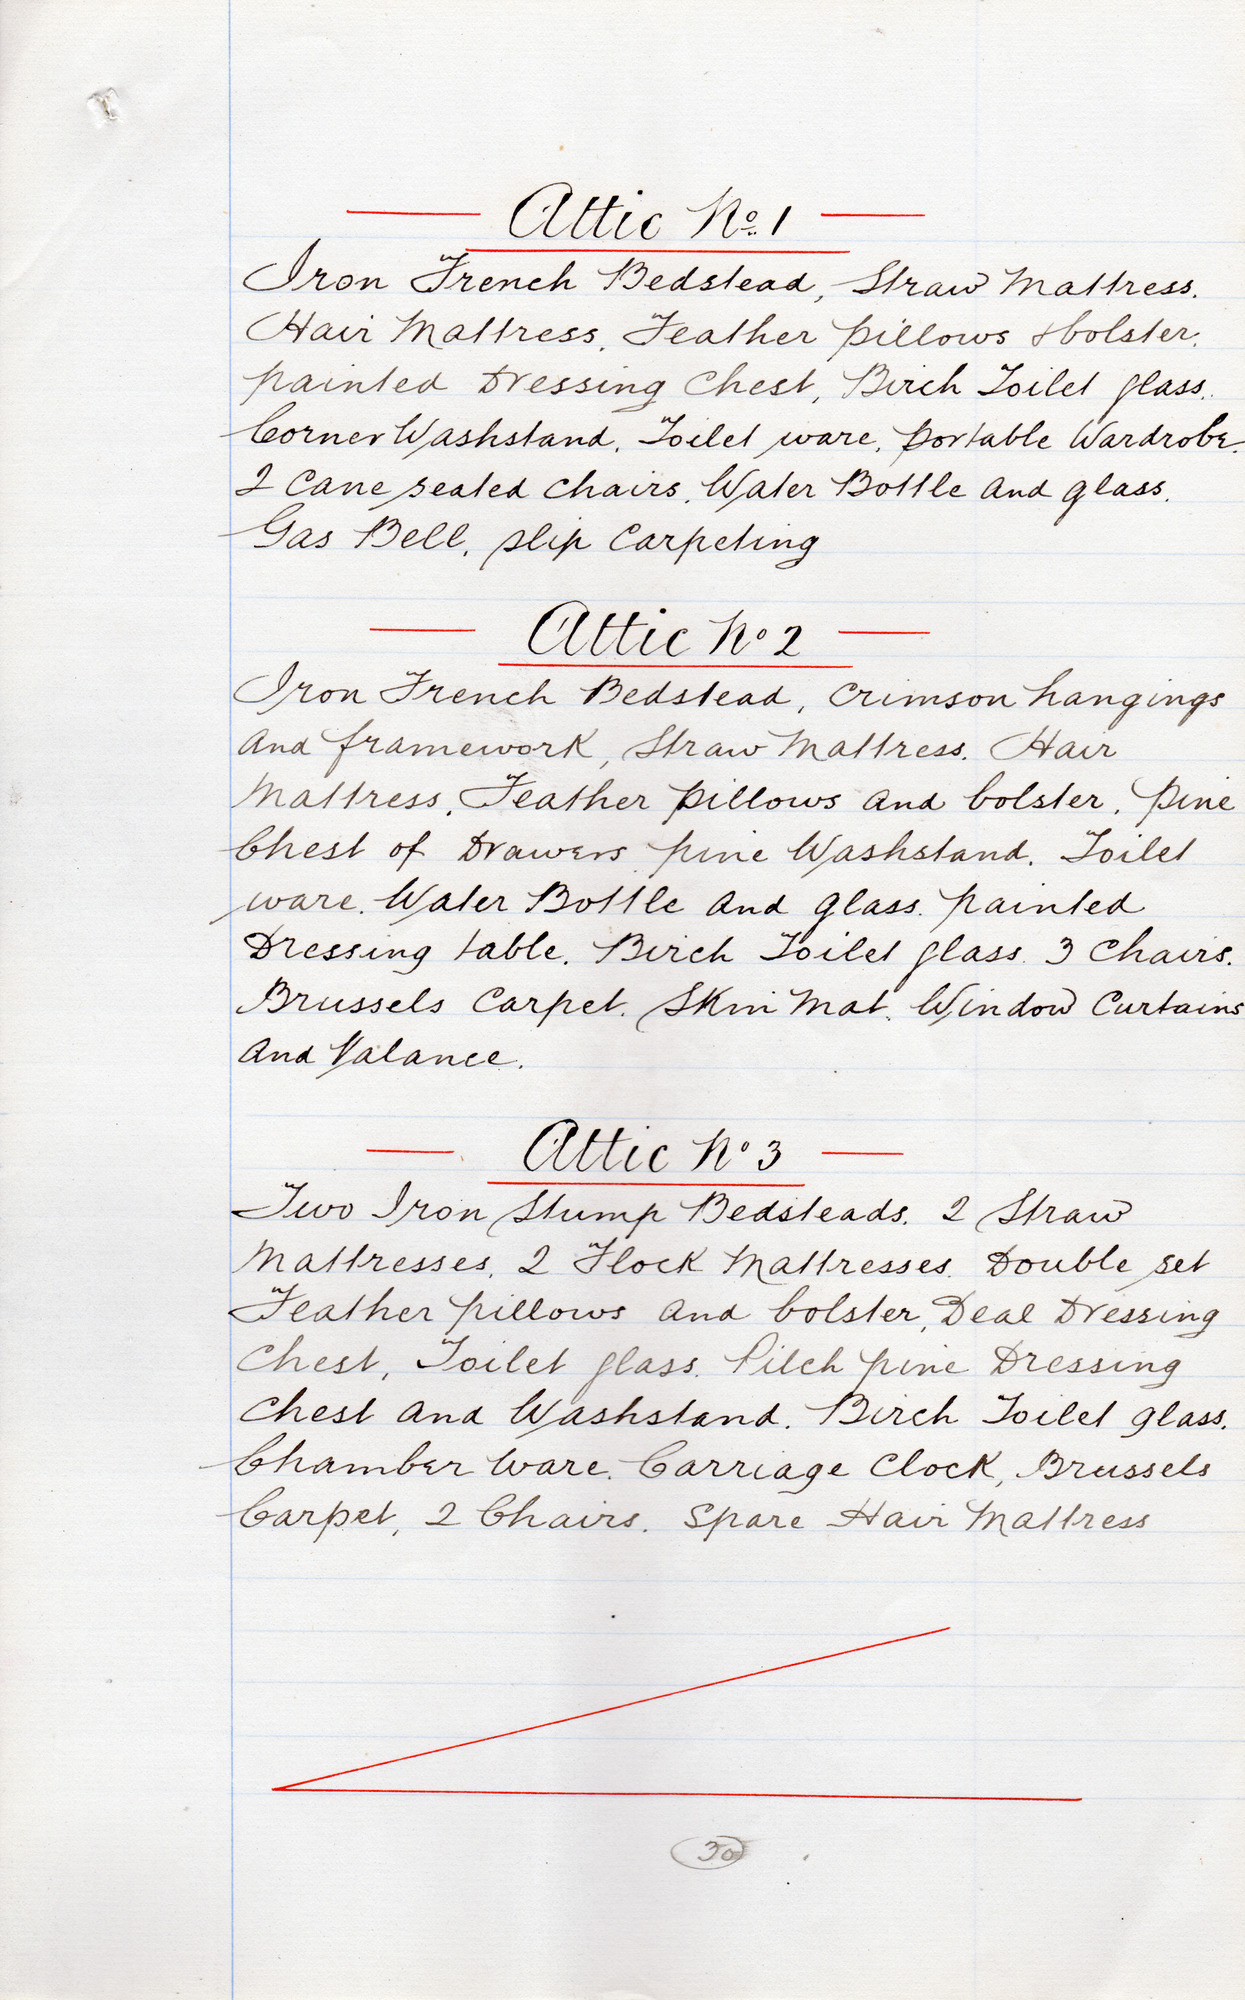 Attic No. 1
Iron French Bedstead, Straw Mattress.
Hair Mattress, Feather pillows & bolster.
painted Dressing Chest, Birch Toilet glass.
Corner Washstand, Toilet ware, portable Wardrobe.
2 Cane seated chairs, Water Bottle and glass.
Gas Bell, slip Carpeting
Attic No 2
Iron French Bedstead, Crimson hangings
and framework, Straw Mattress. Hair
Mattress, Feather pillows and bolster, pine
Chest of Drawers pine Washstand. Toilet
ware. Water Bottle and glass. painted
Dressing table. Birch Toilet glass. 3 Chairs.
Brussels Carpet. Skin Mat. Window Curtains
and Valance.
Attic No 3
Two Iron Stump Bedsteads. 2 Straw
Mattresses, 2 Flock Mattresses. Double set
Feather pillows and bolster, Deal Dressing
Chest, Toilet glass. Pitch pine Dressing
Chest and Washstand. Birch Toilet glass.
Chamber Ware. Carriage Clock, Brussels
Carpet, 2 Chairs. Spare Hair Mattress
30